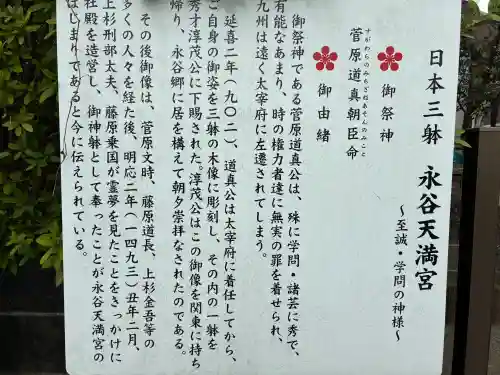 日本三躰 永谷天満宮
～至誠・学問の神様～
御祭神
すがわらのみちざねあそんのみこと
菅原道真朝臣命
御由緒
御祭神である菅原道真公は、殊に学問・諸芸に秀で、
有能なあまり、時の権力者達に無実の罪を着せられ、
九州は遠く太宰府に左遷されてしまう。
延喜二年（九〇二）、道真公は太宰府に着任してから、
ご自身の御姿を三躰の木像に彫刻し、その内の一躰を
秀才淳茂公に下賜された。淳茂公はこの御像を関東に持ち
帰り、永谷郷に居を構えて朝夕崇拝なされたのである。
その後御像は、菅原文時、藤原道長、上杉金吾等の
多くの人々を経た後、明応二年（一四九三）丑年二月、
上杉刑部太夫、藤原乗国が霊夢を見たことをきっかけに
社殿を造営し、御神躰として奉ったことが永谷天満宮の
はじまりであると今に伝えられている。